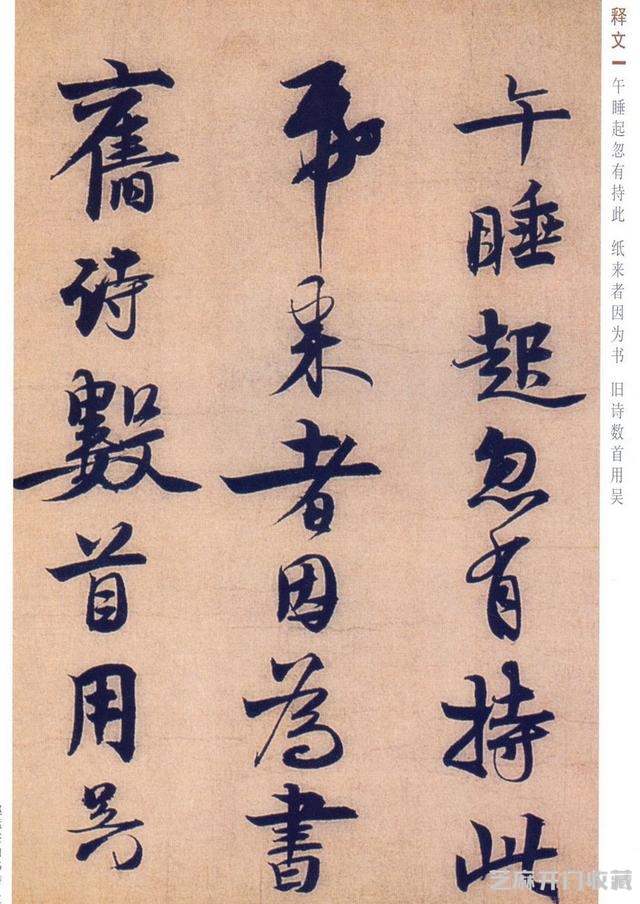 释文
午睡起忽有持此 纸来者因为书 旧诗数首用吴
午睡起忽有持此
帋来者因為書
舊詩數首用吴
芝麻开门收藏